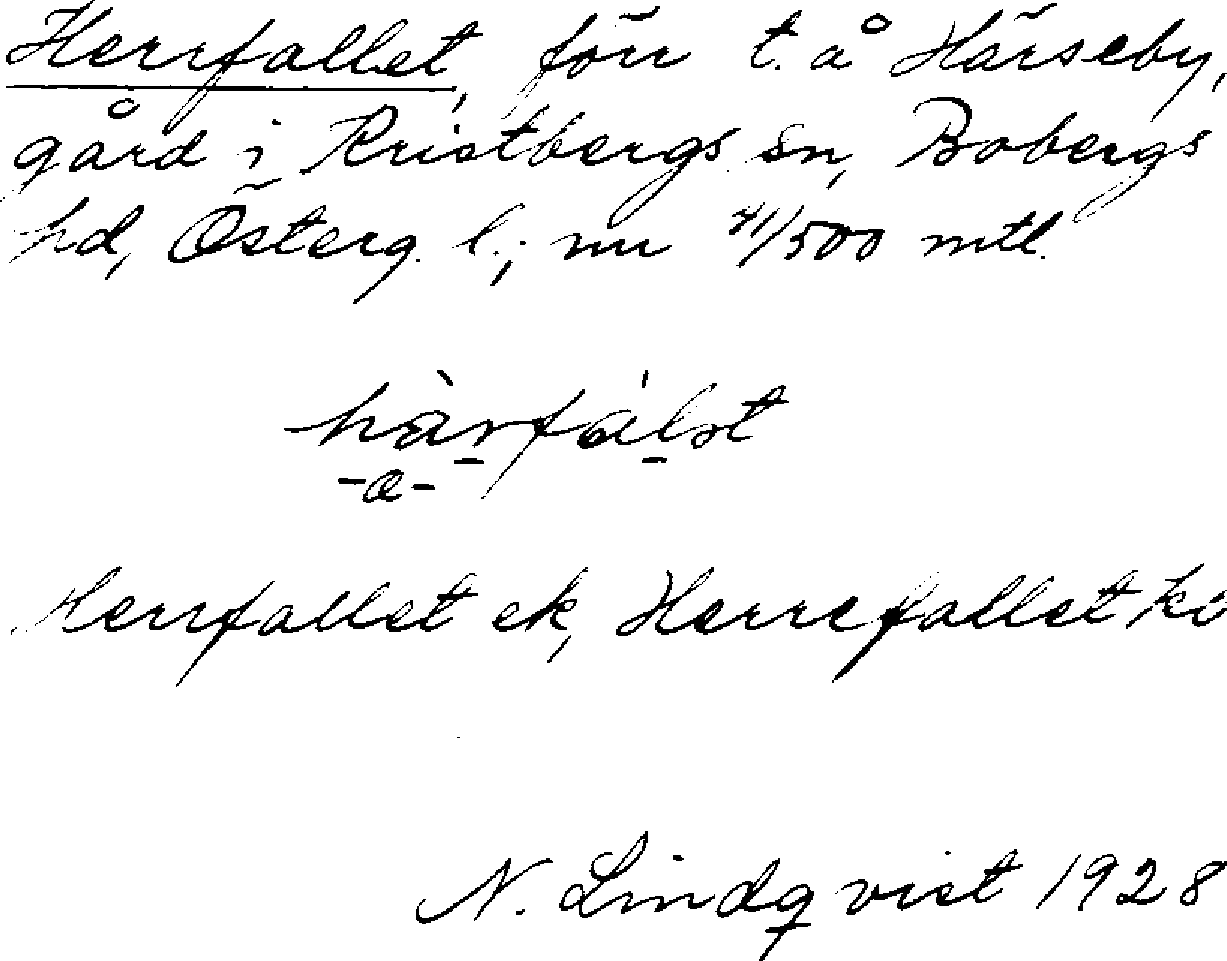 Herrfallet, förr t. å Härseby,
gård i Kristbergs sn, Bobergs
hd, Österg. l.; nu 41/500 mtl.
hàrfálət
-a-
Herrfallet ek, Herrefallet kö
N. Lindqvist 1928